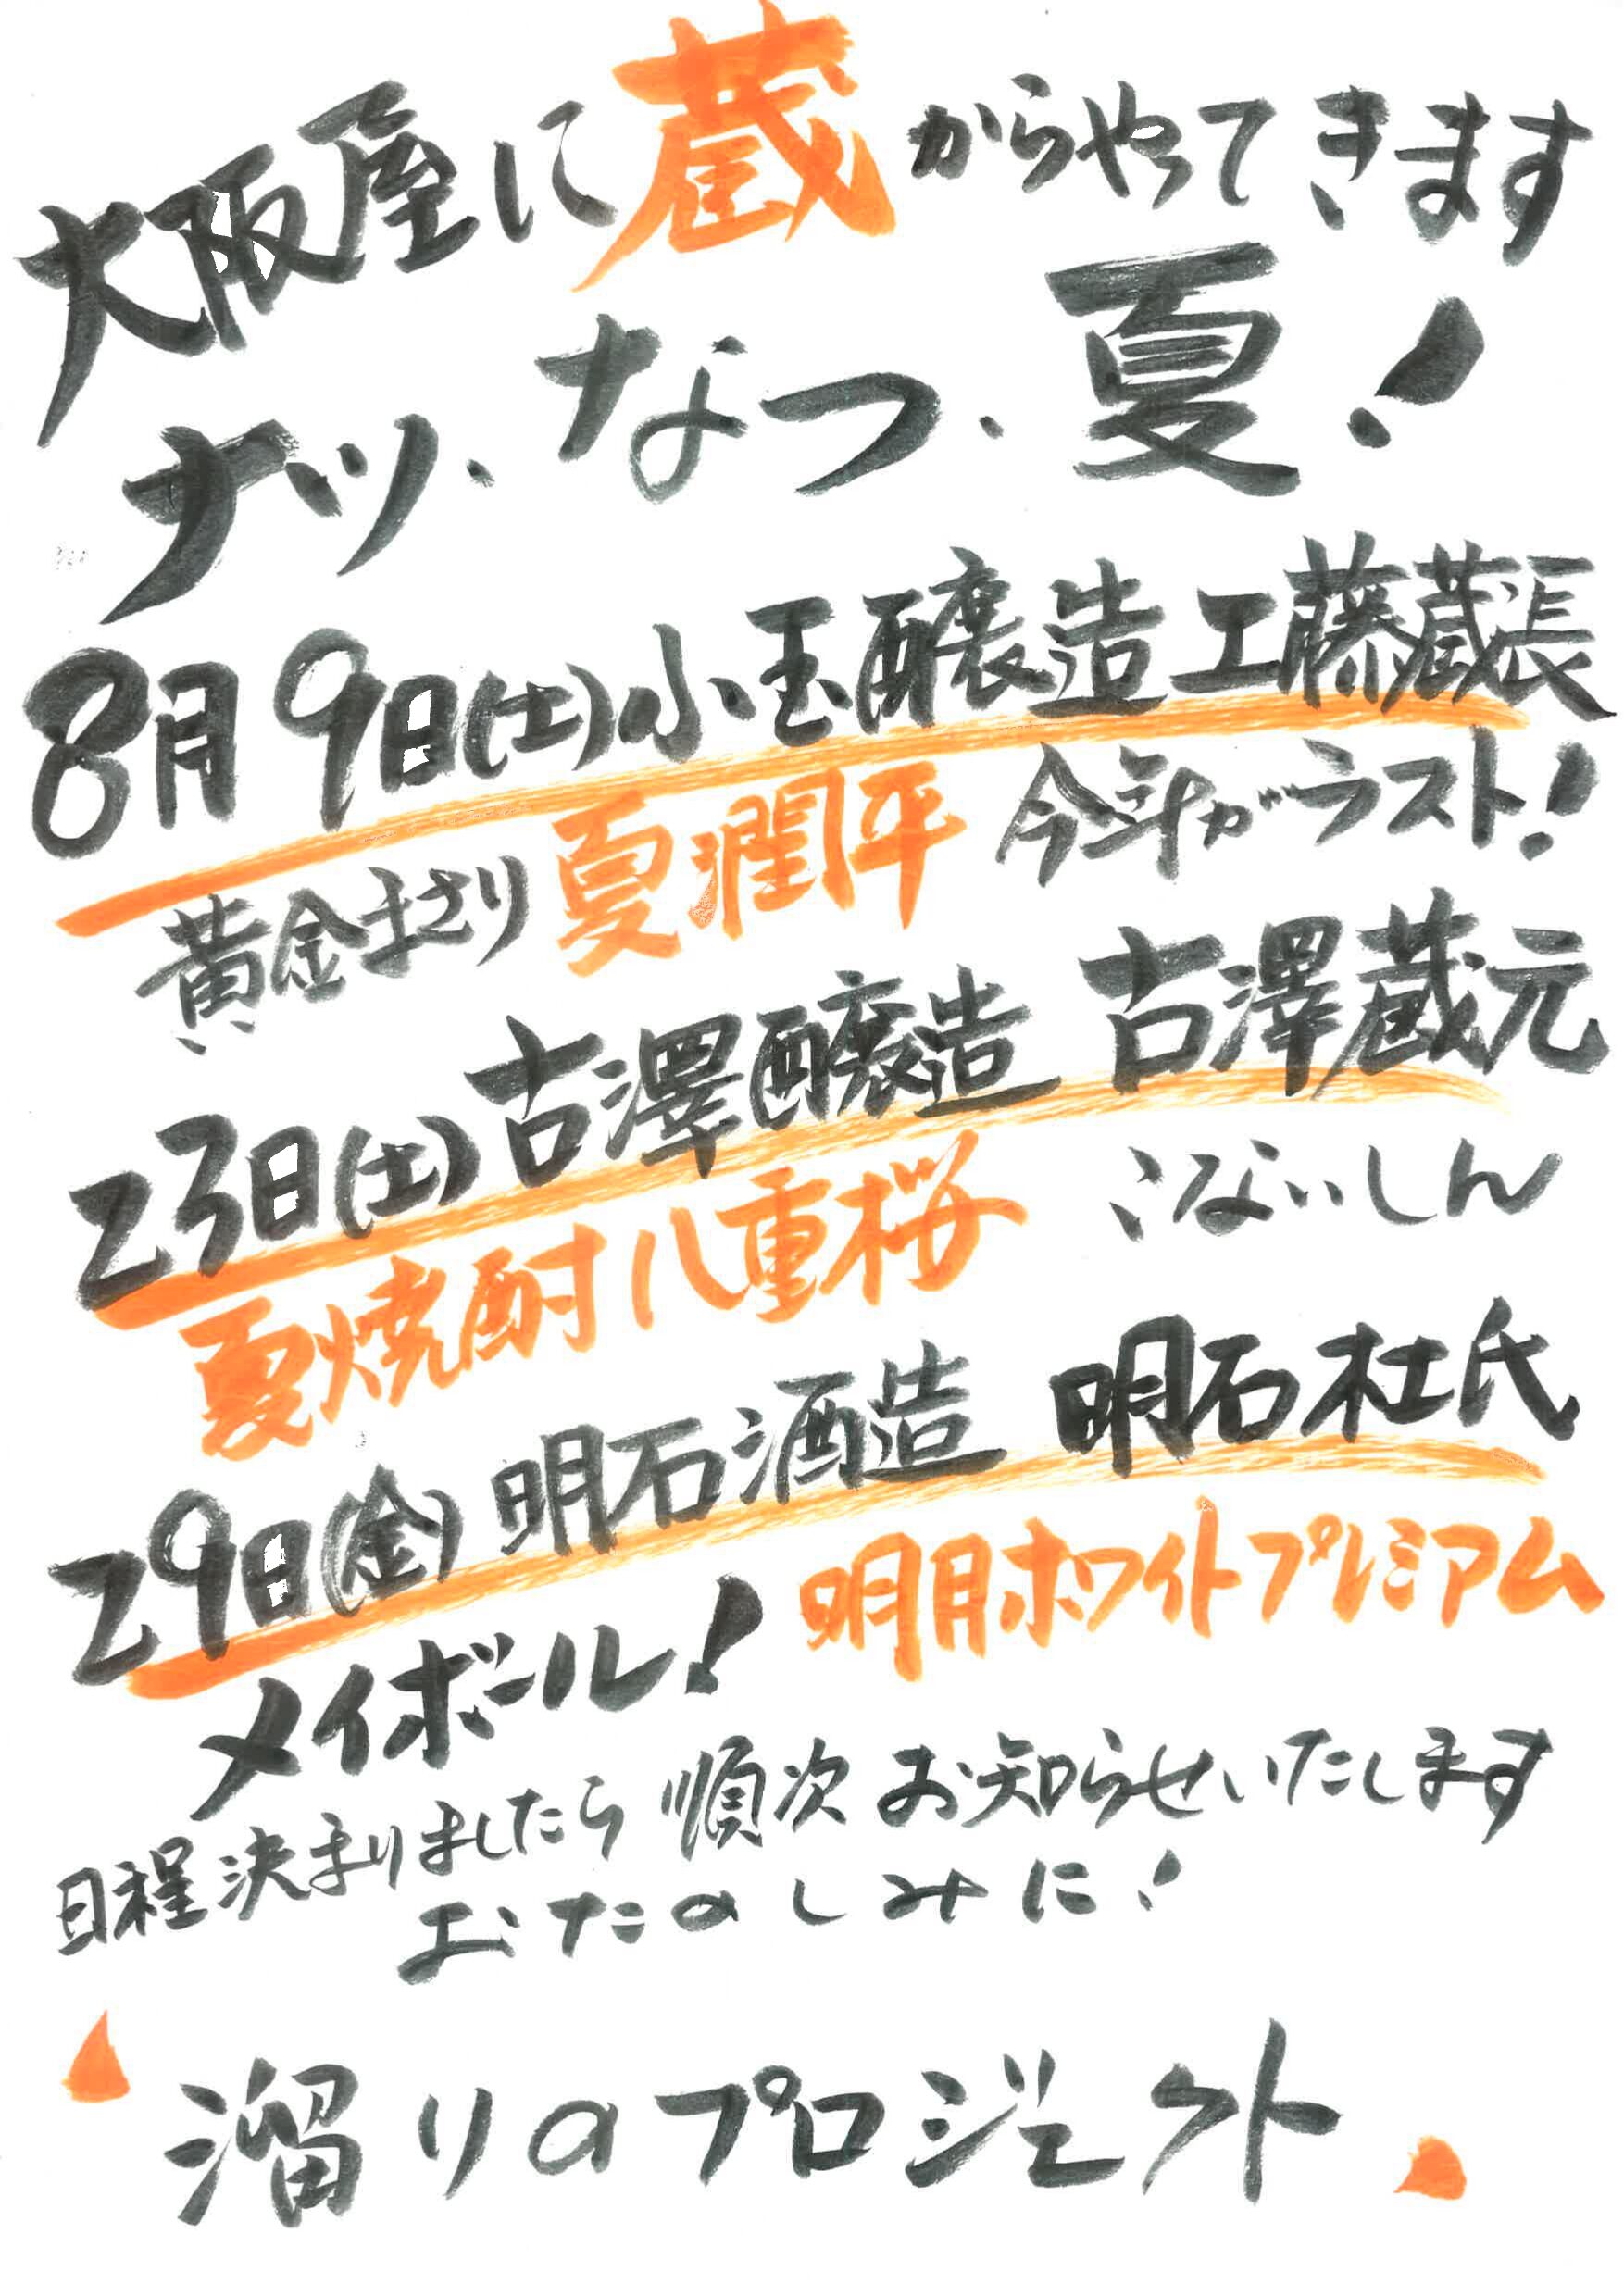 大阪屋に蔵からやってきます
ナツ、なつ、夏!
8月9日(土)小玉醸造 工藤蔵長
黄金まさり 夏潤平 今年がラスト!
23日(土)古澤醸造 古澤蔵元
夏焼酎 八重桜 こないしん
29日(金)明石酒造 明石杜氏
メイボール! 明月ホワイトプレミアム
日程決まりましたら順次お知らせいたします
おたのしみに!
溜りのプロジェクト